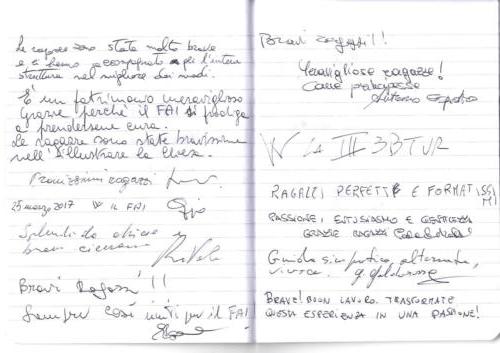 Le ragazze sono state molto brave
e ci hanno accompagnato per l'intera
struttura nel migliore dei modi.
È un patrimonio meraviglioso
Grazie perchè il FAI si prodiga
a prendersene cura.
Le ragazze sono state bravissime
nell'illustrare la Chiesa.
ragazzi
25 marzo 2017 W il FAI
Splendida
bravi
Bravi Ragazzi!!
Sempre così uniti per il FAI!
Bravi ragazzi!!
Meravigliose ragazze!
Antonio
W la III 3BTUR
RAGAZZI PERFETTI E FORMATISSIMI
PASSIONE, ENTUSIASMO E GENTILEZZA
GRAZIE RAGAZZI
Guida simpatica, alternativa,
vivace.
BRAVE! BUON LAVORO. TRASFORMATE
QUESTA ESPERIENZA IN UNA PASSIONE!